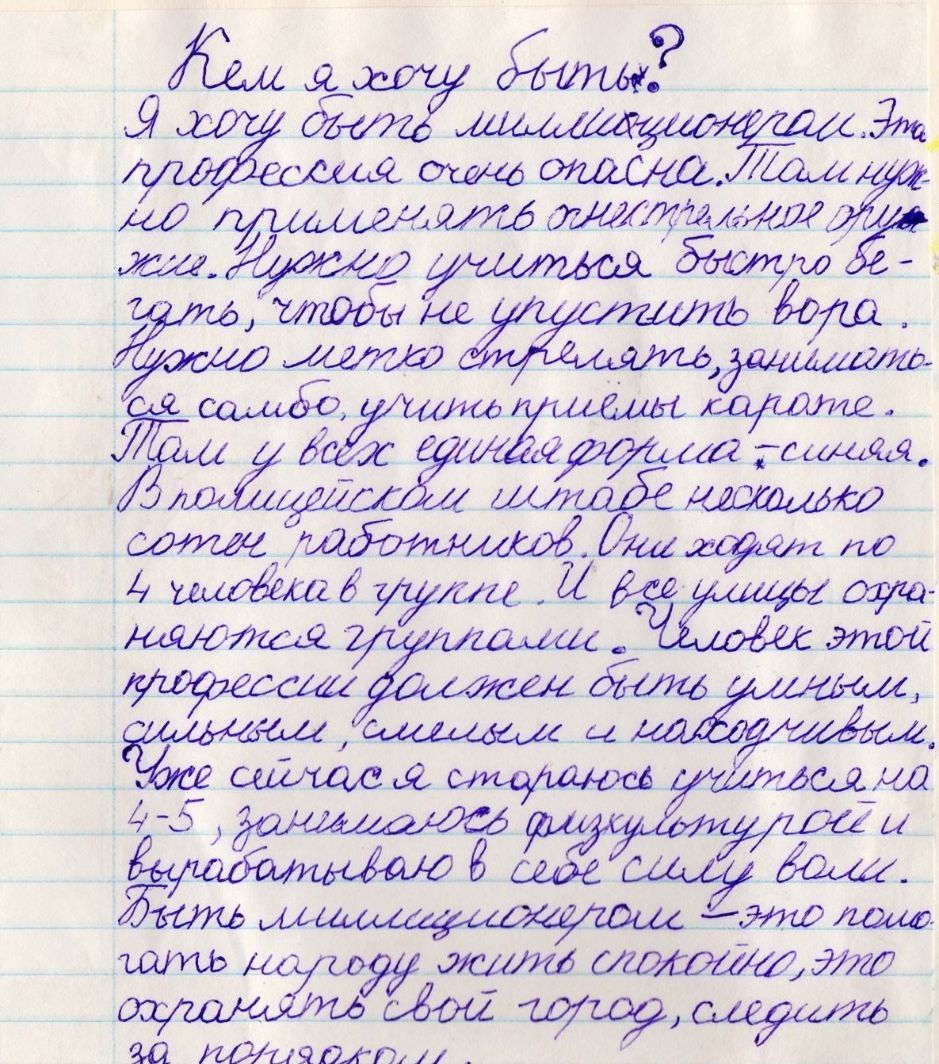 Кем я хочу быть?
Я хочу быть миллиционером. Эта
профессия очень опасна. Там нуж-
но применять огнестрельное ору
жие. Нужно учиться быстро бе-
гать, чтобы не упустить вора.
Нужно метко стрелять, занимать-
ся самбо, учить приёмы карате.
Там у всех единая форма - синяя.
В полицейском штабе несколько
сотен работников. Они ходят по
4 человека в группе. И все улицы охра-
няются группами. Человек этой
профессии должен быть умным,
сильным, смелым и находчивым.
Уже сейчас я стараюсь учиться на
4-5, занимаюсь физкультурой и
вырабатываю в себе силу воли.
Быть миллиционером - это помо
гать народу жить спокойно, это
охранять свой город, следить
за порядком.